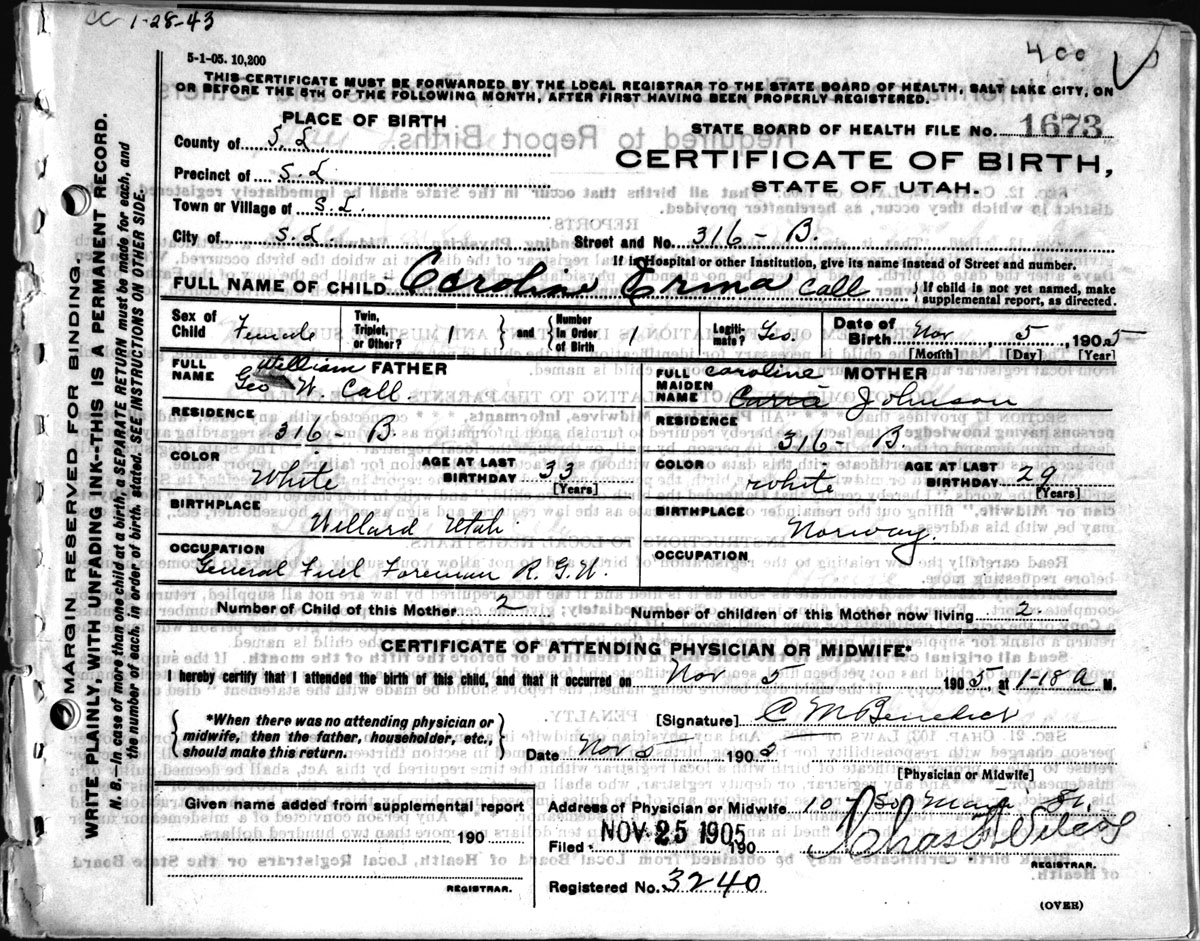 CC 1-28-43
400 V
5-1-05. 10,200
THIS CERTIFICATE MUST BE FORWARDED BY THE LOCAL REGISTRAR TO THE STATE BOARD OF HEALTH, SALT LAKE CITY, ON
OR BEFORE THE 5TH OF THE FOLLOWING MONTH, AFTER FIRST HAVING BEEN PROPERLY REGISTERED.
MARGIN RESERVED FOR BINDING.
WRITE PLAINLY WITH UNFADING INK--THIS IS A PERMANENT RECORD.
N. B.—In case of more than one child at a birth, a SEPARATE RETURN must be made for each, and
the number of each, in order of birth, stated. SEE INSTRUCTIONS ON OTHER SIDE.
PLACE OF BIRTH
County of S. L.
Precinct of S. L
Town or Village of S. L.
City of S. L.
STATE BOARD OF HEALTH FILE No. 1673
CERTIFICATE OF BIRTH,
STATE OF UTAH.
Street and No. 316 - B.
If in Hospital or other Institution, give its name instead of Street and number.
FULL NAME OF CHILD Caroline Erma Call
If child is not yet named, make
supplemental report, as directed.
Sex of Child Female
Twin, Triplet, or Other? 1
and
Number in Order of Birth 1
Legiti-mate? Yes.
Date of Birth Nov 5 1905
[Month] [Day] [Year]
FULL NAME FATHER
William
Geo W. Call.
RESIDENCE
316 - B.
COLOR White
AGE AT LAST BIRTHDAY 33
[Years]
BIRTHPLACE
Willard Utah
OCCUPATION
General Fuel Foreman R. G. W.
FULL MAIDEN NAME MOTHER
Caroline
Carria Johnson
RESIDENCE
316 - B.
COLOR White
AGE AT LAST BIRTHDAY 29
[Years]
BIRTHPLACE
Norway.
OCCUPATION
Number of Child of this Mother 2
Number of children of this Mother now living 2.
CERTIFICATE OF ATTENDING PHYSICIAN OR MIDWIFE*
I hereby certify that I attended the birth of this child, and that it occurred on Nov 5 1905, at 1-18 a M.
*When there was no attending physician or
midwife, then the father, householder, etc.,
should make this return.
[Signature] C M Benedict
Date Nov 5 1905
[Physician or Midwife]
Given name added from supplemental report
190
REGISTRAR.
Address of Physician or Midwife So Main St.
Filed NOV 25 1905 190
REGISTRAR.
Registered No. 3240
(OVER)